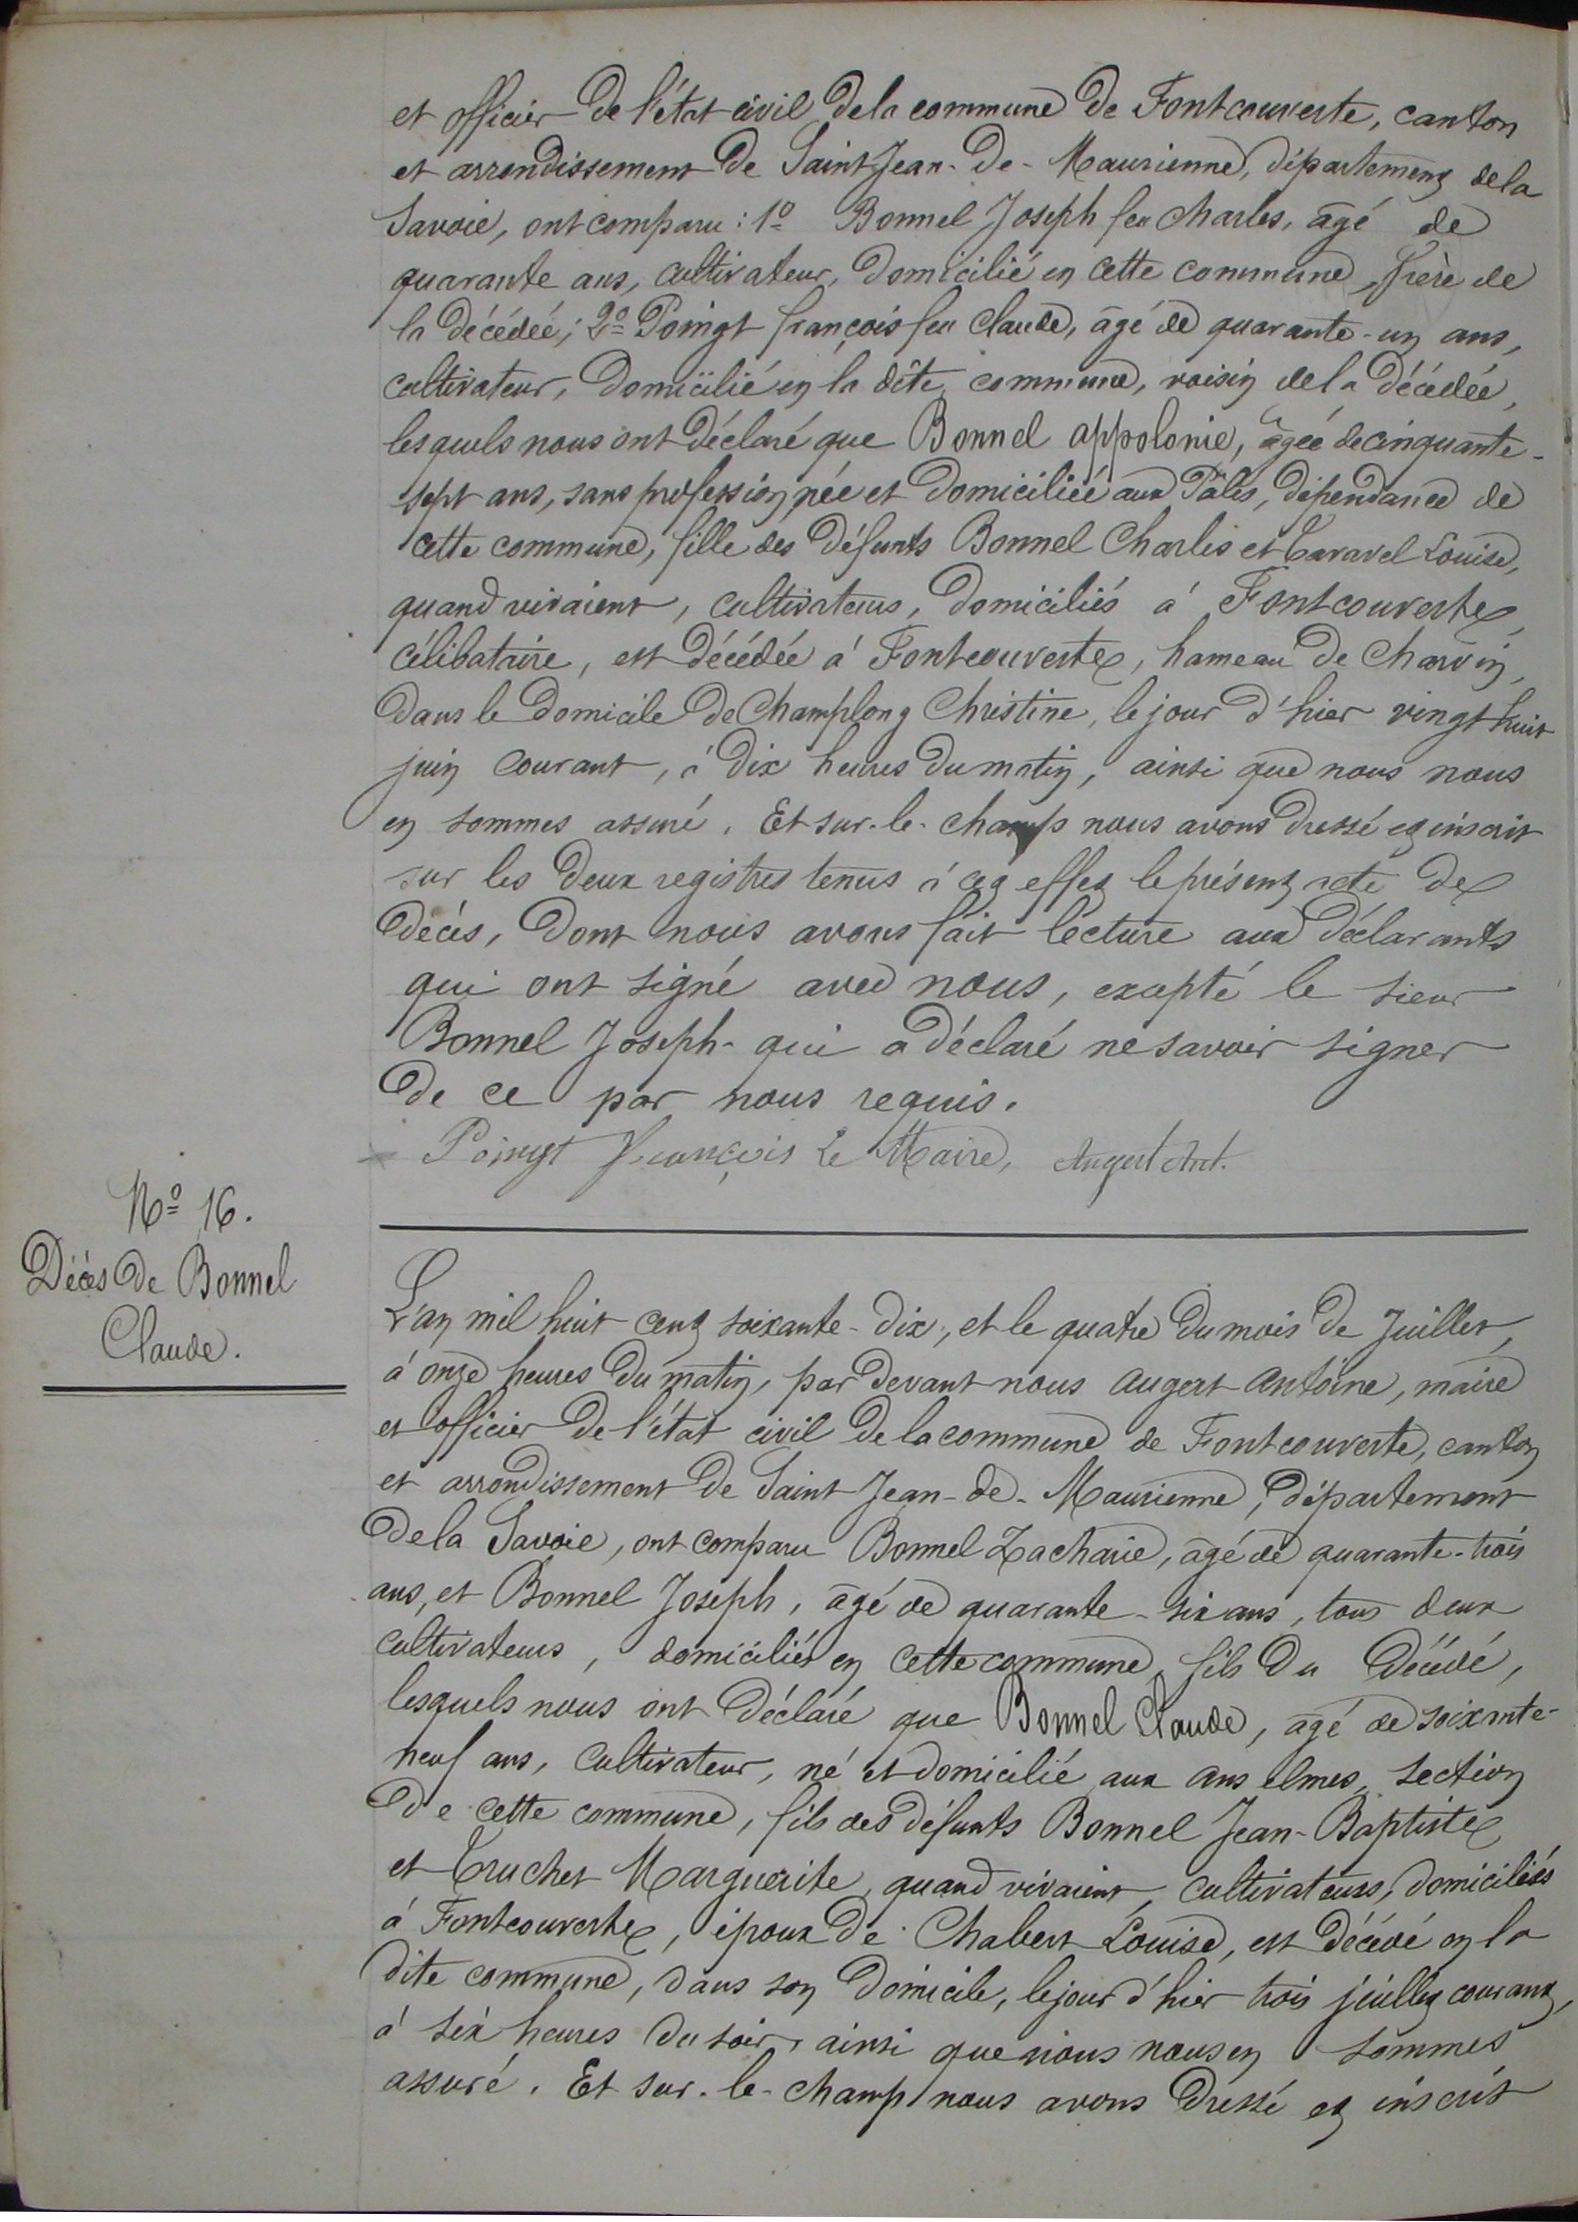 et officier de l'état civil de la commune de Fontcouverte, canton
et arrondissement de Saint Jean-de-Maurienne, département de la
Savoie, ont comparu : 1º Bonnel Joseph feu Charles, âgé de
quarante ans, cultivateur, domicilié en cette commune, frère de
la décédée ; 2º Poingt françois feu Claude, âgé de quarante-un ans,
cultivateur, domicilié en la dite commune, voisin de la décédée,
lesquels nous ont déclaré que Bonnel appolonie, âgée de cinquante-
sept ans, sans profession, née et domiciliée aux Pâles, dépendance de
cette commune, fille des défunts Bonnel Charles et Taravel Louise,
quand vivaient, cultivateurs, domiciliés à Fontcouverte,
célibataire, est décédée à Fontcouverte, hameau de Charvin,
dans le domicile de Champlong Christine, le jour d'hier vingt huit
juin courant, à dix heures du matin, ainsi que nous nous
en sommes assuré. Et sur-le-champ nous avons dressé et inscrit
sur les deux registres tenus à cet effet le présent acte de
décès, dont nous avons fait lecture aux déclarants
qui ont signé avec nous, excepté le sieur
Bonnel Joseph qui a déclaré ne savoir signer
de ce par nous requis.
Poingt François Le Maire, Augert Ant.
Nº 16.
Décès de Bonnel
Claude.
L'an mil huit cent soixante-dix, et le quatre du mois de Juillet,
à onze heures du matin, par devant nous Augert Antoine, maire
et officier de l'état civil de la commune de Fontcouverte, canton
et arrondissement de Saint Jean-de-Maurienne, département
de la Savoie, ont comparu Bonnel Zacharie, âgé de quarante-trois
ans, et Bonnel Joseph, âgé de quarante-six ans, tous deux
cultivateurs, domiciliés en cette commune, fils du décédé,
lesquels nous ont déclaré que Bonnel Claude, âgé de soixante-
neuf ans, cultivateur, né et domicilié aux Anselmes, section
de cette commune, fils des défunts Bonnel Jean-Baptiste
et Truchet Marguerite, quand vivaient, cultivateurs, domiciliés
à Fontcouverte, époux de Chabert Louise, est décédé en la
dite commune, dans son domicile, le jour d'hier trois juillet courant,
à six heures du soir, ainsi que nous nous en sommes
assuré. Et sur-le-champ nous avons dressé et inscrit